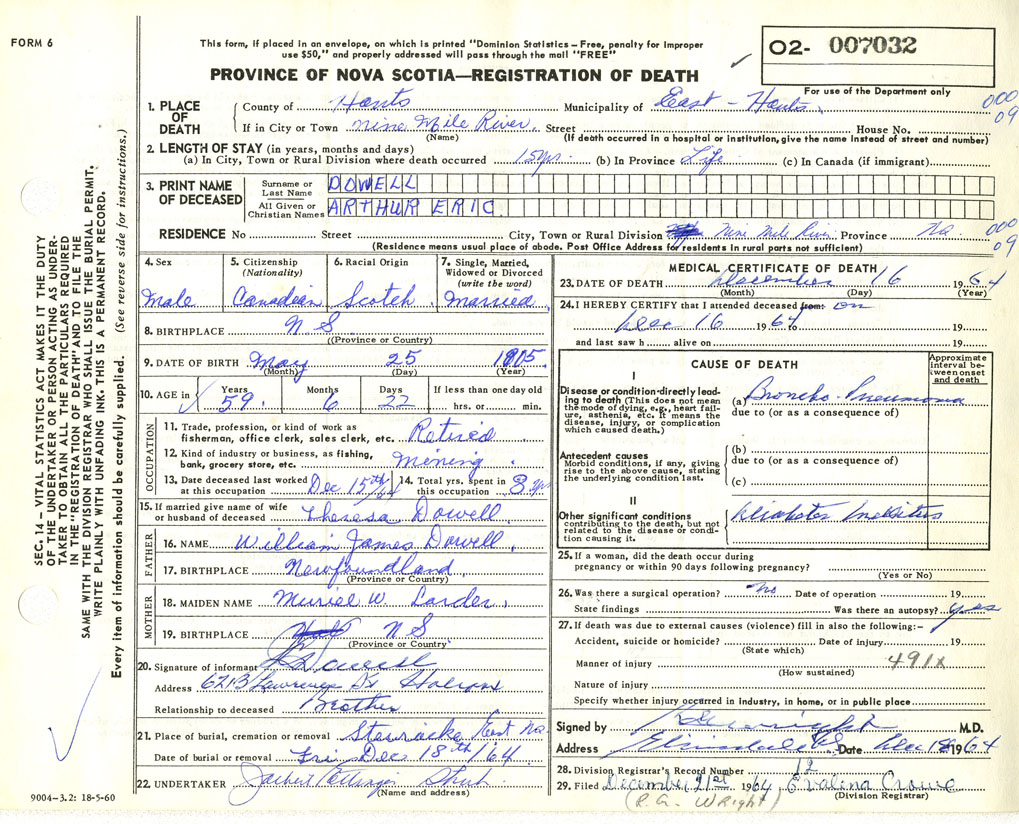 FORM 6
This form, if placed in an envelope, on which is printed "Dominion Statistics – Free, penalty for improper
use $50," and properly addressed will pass through the mail "FREE"
O2- 007032
PROVINCE OF NOVA SCOTIA—REGISTRATION OF DEATH
For use of the Department only
1. PLACE OF DEATH
County of Hants Municipality of East - Hants 000
09
If in City or Town Nine Mile River Street House No.
(Name) (If death occurred in a hospital or institution, give the name instead of street and number)
2. LENGTH OF STAY (in years, months and days)
(a) In City, Town or Rural Division where death occurred 15 yrs. (b) In Province Life (c) In Canada (if immigrant)
3. PRINT NAME OF DECEASED
Surname or Last Name DOWELL
All Given or Christian Names ARTHUR ERIC
RESIDENCE No Street City, Town or Rural Division Nine Mile River Province N.S. 000
09
(Residence means usual place of abode. Post Office Address for residents in rural parts not sufficient)
4. Sex
Male
5. Citizenship
(Nationality)
Canadian
6. Racial Origin
Scotch
7. Single, Married,
Widowed or Divorced
(write the word)
Married
8. BIRTHPLACE N S
((Province or Country)
9. DATE OF BIRTH May 25 1905
(Month) (Day) (Year)
10. AGE in Years Months Days If less than one day old
59 6 22 hrs. or min.
OCCUPATION
11. Trade, profession, or kind of work as
fisherman, office clerk, sales clerk, etc. Retired
12. Kind of industry or business, as fishing,
bank, grocery store, etc. Mining
13. Date deceased last worked
at this occupation Dec 15th/64
14. Total yrs. spent in
this occupation 8 yrs
15. If married give name of wife
or husband of deceased Theresa Dowell
FATHER
16. NAME William James Dowell
17. BIRTHPLACE Newfoundland
(Province or Country)
MOTHER
18. MAIDEN NAME Muriel W. Larder
19. BIRTHPLACE N S
(Province or Country)
20. Signature of informant
Address 6213 Lawrence St
Relationship to deceased Brother
21. Place of burial, cremation or removal East
Date of burial or removal Fri Dec 18th/64
22. UNDERTAKER
(Name and address)
MEDICAL CERTIFICATE OF DEATH
23. DATE OF DEATH December 16 1964
(Month) (Day) (Year)
24. I HEREBY CERTIFY that I attended deceased from: on
Dec 16 1964 to 19
and last saw h alive on 19
CAUSE OF DEATH
Approximate
interval be-
tween onset
and death
I
Disease or condition directly lead-
ing to death (This does not mean
the mode of dying, e.g., heart fail-
ure, asthenia, etc. It means the
disease, injury, or complication
which caused death.)
(a) Broncho-Pneumonia
due to (or as a consequence of)
Antecedent causes
Morbid conditions, if any, giving
rise to the above cause, stating
the underlying condition last.
(b)
due to (or as a consequence of)
(c)
II
Other significant conditions
contributing to the death, but not
related to the disease or condi-
tion causing it.
Diabetes Mellitus
25. If a woman, did the death occur during
pregnancy or within 90 days following pregnancy?
(Yes or No)
26. Was there a surgical operation? No Date of operation 19
State findings Was there an autopsy? Yes
27. If death was due to external causes (violence) fill in also the following:–
Accident, suicide or homicide? Date of injury 19
(State which)
491X
Manner of injury
(How sustained)
Nature of injury
Specify whether injury occurred in Industry, in home, or in public place
Signed by M.D.
Address Elmsdale Date Dec 18 1964
28. Division Registrar's Record Number 12
29. Filed December 21st 1964 Evalina Crowe
(R.G. Wright) (Division Registrar)
9004-3.2: 18-5-60
SEC. 14 – VITAL STATISTICS ACT MAKES IT THE DUTY
OF THE UNDERTAKER OR PERSON ACTING AS UNDER-
TAKER TO OBTAIN ALL THE PARTICULARS REQUIRED
IN THE "REGISTRATION OF DEATH" AND TO FILE THE
SAME WITH THE DIVISION REGISTRAR WHO SHALL ISSUE THE BURIAL PERMIT.
WRITE PLAINLY WITH UNFADING INK. THIS IS A PERMANENT RECORD.
Every item of information should be carefully supplied. (See reverse side for instructions.)